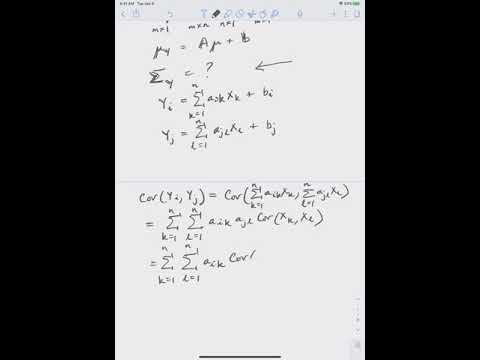 m×1 m×n n×1 m×1
μ_Y = Aμ + b
Σ_Y = ?
Y_i = Σ_{k=1}^{n} a_{ik} X_k + b_i
Y_j = Σ_{l=1}^{n} a_{jl} X_l + b_j
Cov(Y_i, Y_j) = Cov(Σ_{k=1}^{n} a_{ik} X_k, Σ_{l=1}^{n} a_{jl} X_l)
= Σ_{k=1}^{n} Σ_{l=1}^{n} a_{ik} a_{jl} Cov(X_k, X_l)
= Σ_{k=1}^{n} Σ_{l=1}^{n} a_{ik} Cov(